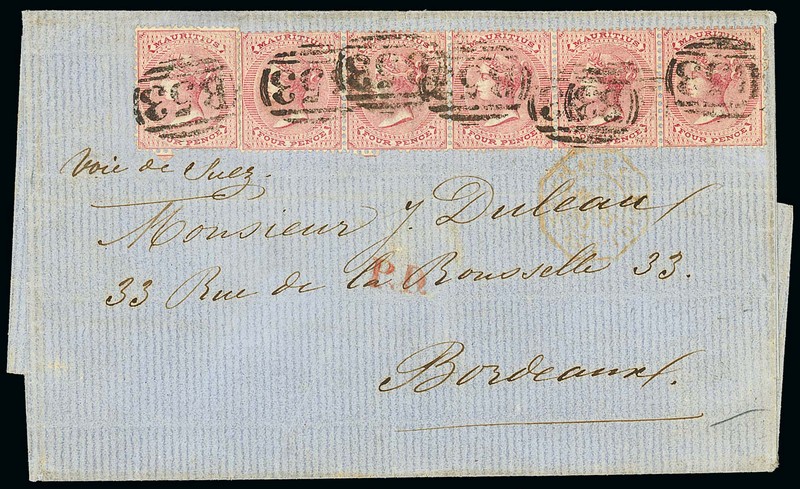 MAURITIUS MAURITIUS MAURITIUS MAURITIUS MAURITIUS MAURITIUS
B53 B53 B53 B53 B53 B53
FOUR PENCE FOUR PENCE FOUR PENCE FOUR PENCE FOUR PENCE FOUR PENCE
Voie de Suez.
Monsieur J. Duleau
33 Rue de la Rousselle 33.
P.D.
Bordeaux.